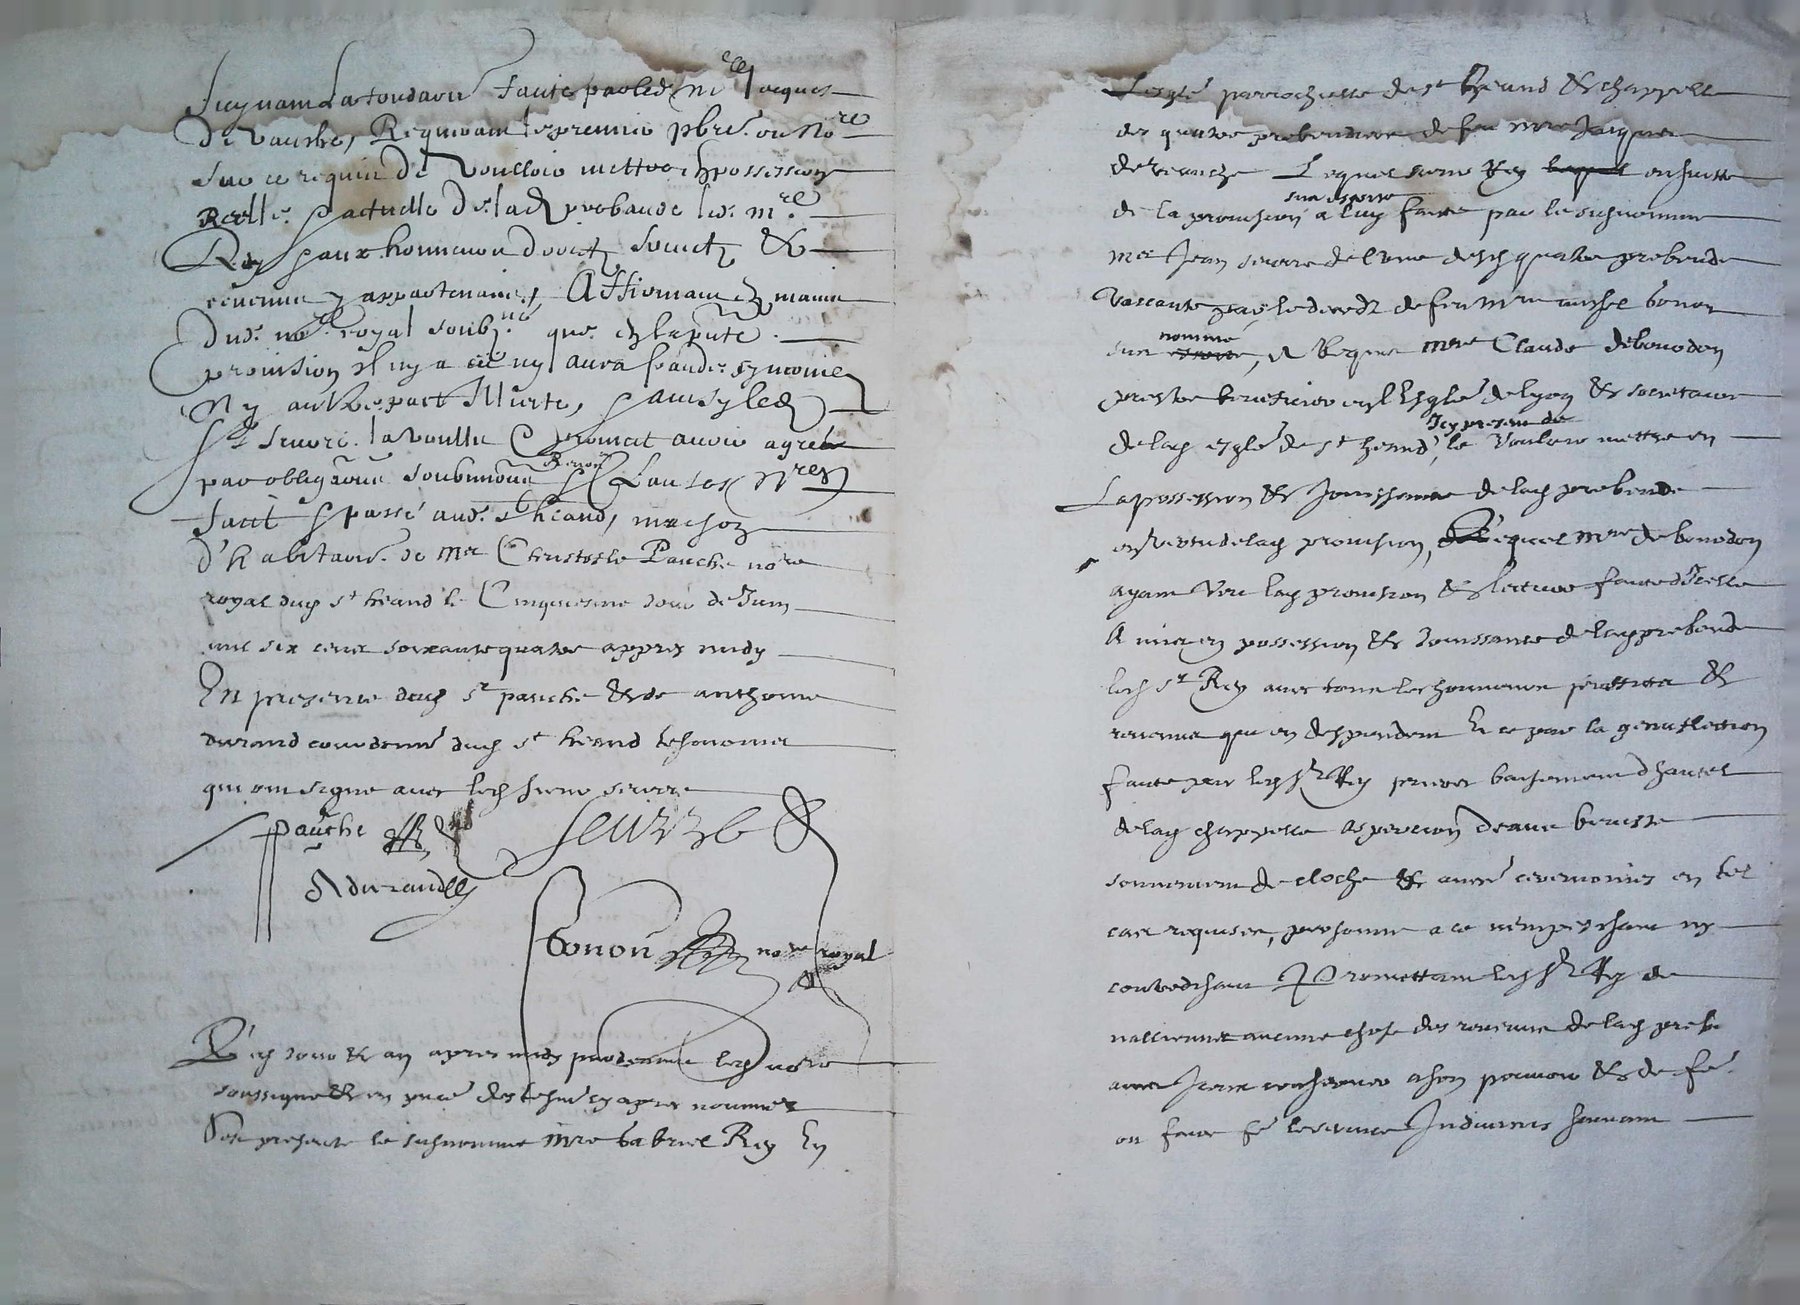 suyvant la fondaon faicte par led mre Jacques
de vauche, Requerant le premier pbre ou nore
sur ce requis de voulloir mettre en possession
Reelle & actuelle de lad prebande led mre
Rey & aux honneurs droictz fruictz &
revenus y appartenans, Affirmant es mains
dud nore royal soubzne que en la pnte
provision il n'y a eu ny aura fraude symonie
Ny aultre pact Illicite, & ainsy led
Sr seurre la voullu & promet avoir agreable
par obligaons soubmions Renons & Clauses Nres
faict & passé aud st heand, maison
d'habitaon de mre Christofle Pauche nore
royal dud st heand le Cinquiesme jour de Juin
mil six cent soixante quatre appres midy
En presence dud sr pauche & de anthoine
durand cordonnr dud st heand tesmoings
qui ont signe avec led sieur seurre
pauche
seurre
A durand
bonon nore royal
Et led jour & an apres midy pardevant led nore
soussigné & en pnce des tesmoings apres nommes
S'est presente le susnomme mre Gabriel Rey En
Lesglé parrochielle de st heand & chappelle
des quatre prebendiers de feu mre Jacques
de veauche Lequel sieur Rey en suitte
de la provision a luy faite par le susnomme
sieur
mre Jean seurre de l'une desd quatre prebende
vaccante par le deced de feu mre michel bonon
nomme
son, A Requis mre Claude debourdon
prestre beneficier en l'Esglé de lyon & secretaire
Icy present de
de lad esglé de st heand, le vouloir mettre en
La possession & Jouissance de lad prebende
en vertu de lad provision, Lequel mre de bourdon
ayant veu lad provision & lecture faite d'Icelle
A mis en possession & Jouissance de lad prebende
led sr Rey avec tous les honneurs proffitz &
revenus qui en despendent Et ce par la genuflection
faite par led sr Rey prieres baisement d'hautel
de lad chappelle aspersion d'eaue beniste
sonnement de cloche & autres ceremonies en tel
cas requises, personne a ce n'empeschant ny
contredisant Promettant led sr Rey de
n'alliener aucune chose des revenus de lad preb
ains Iceux conserver a son pouvoir & de fe
on faire fe le service Indivins suivant